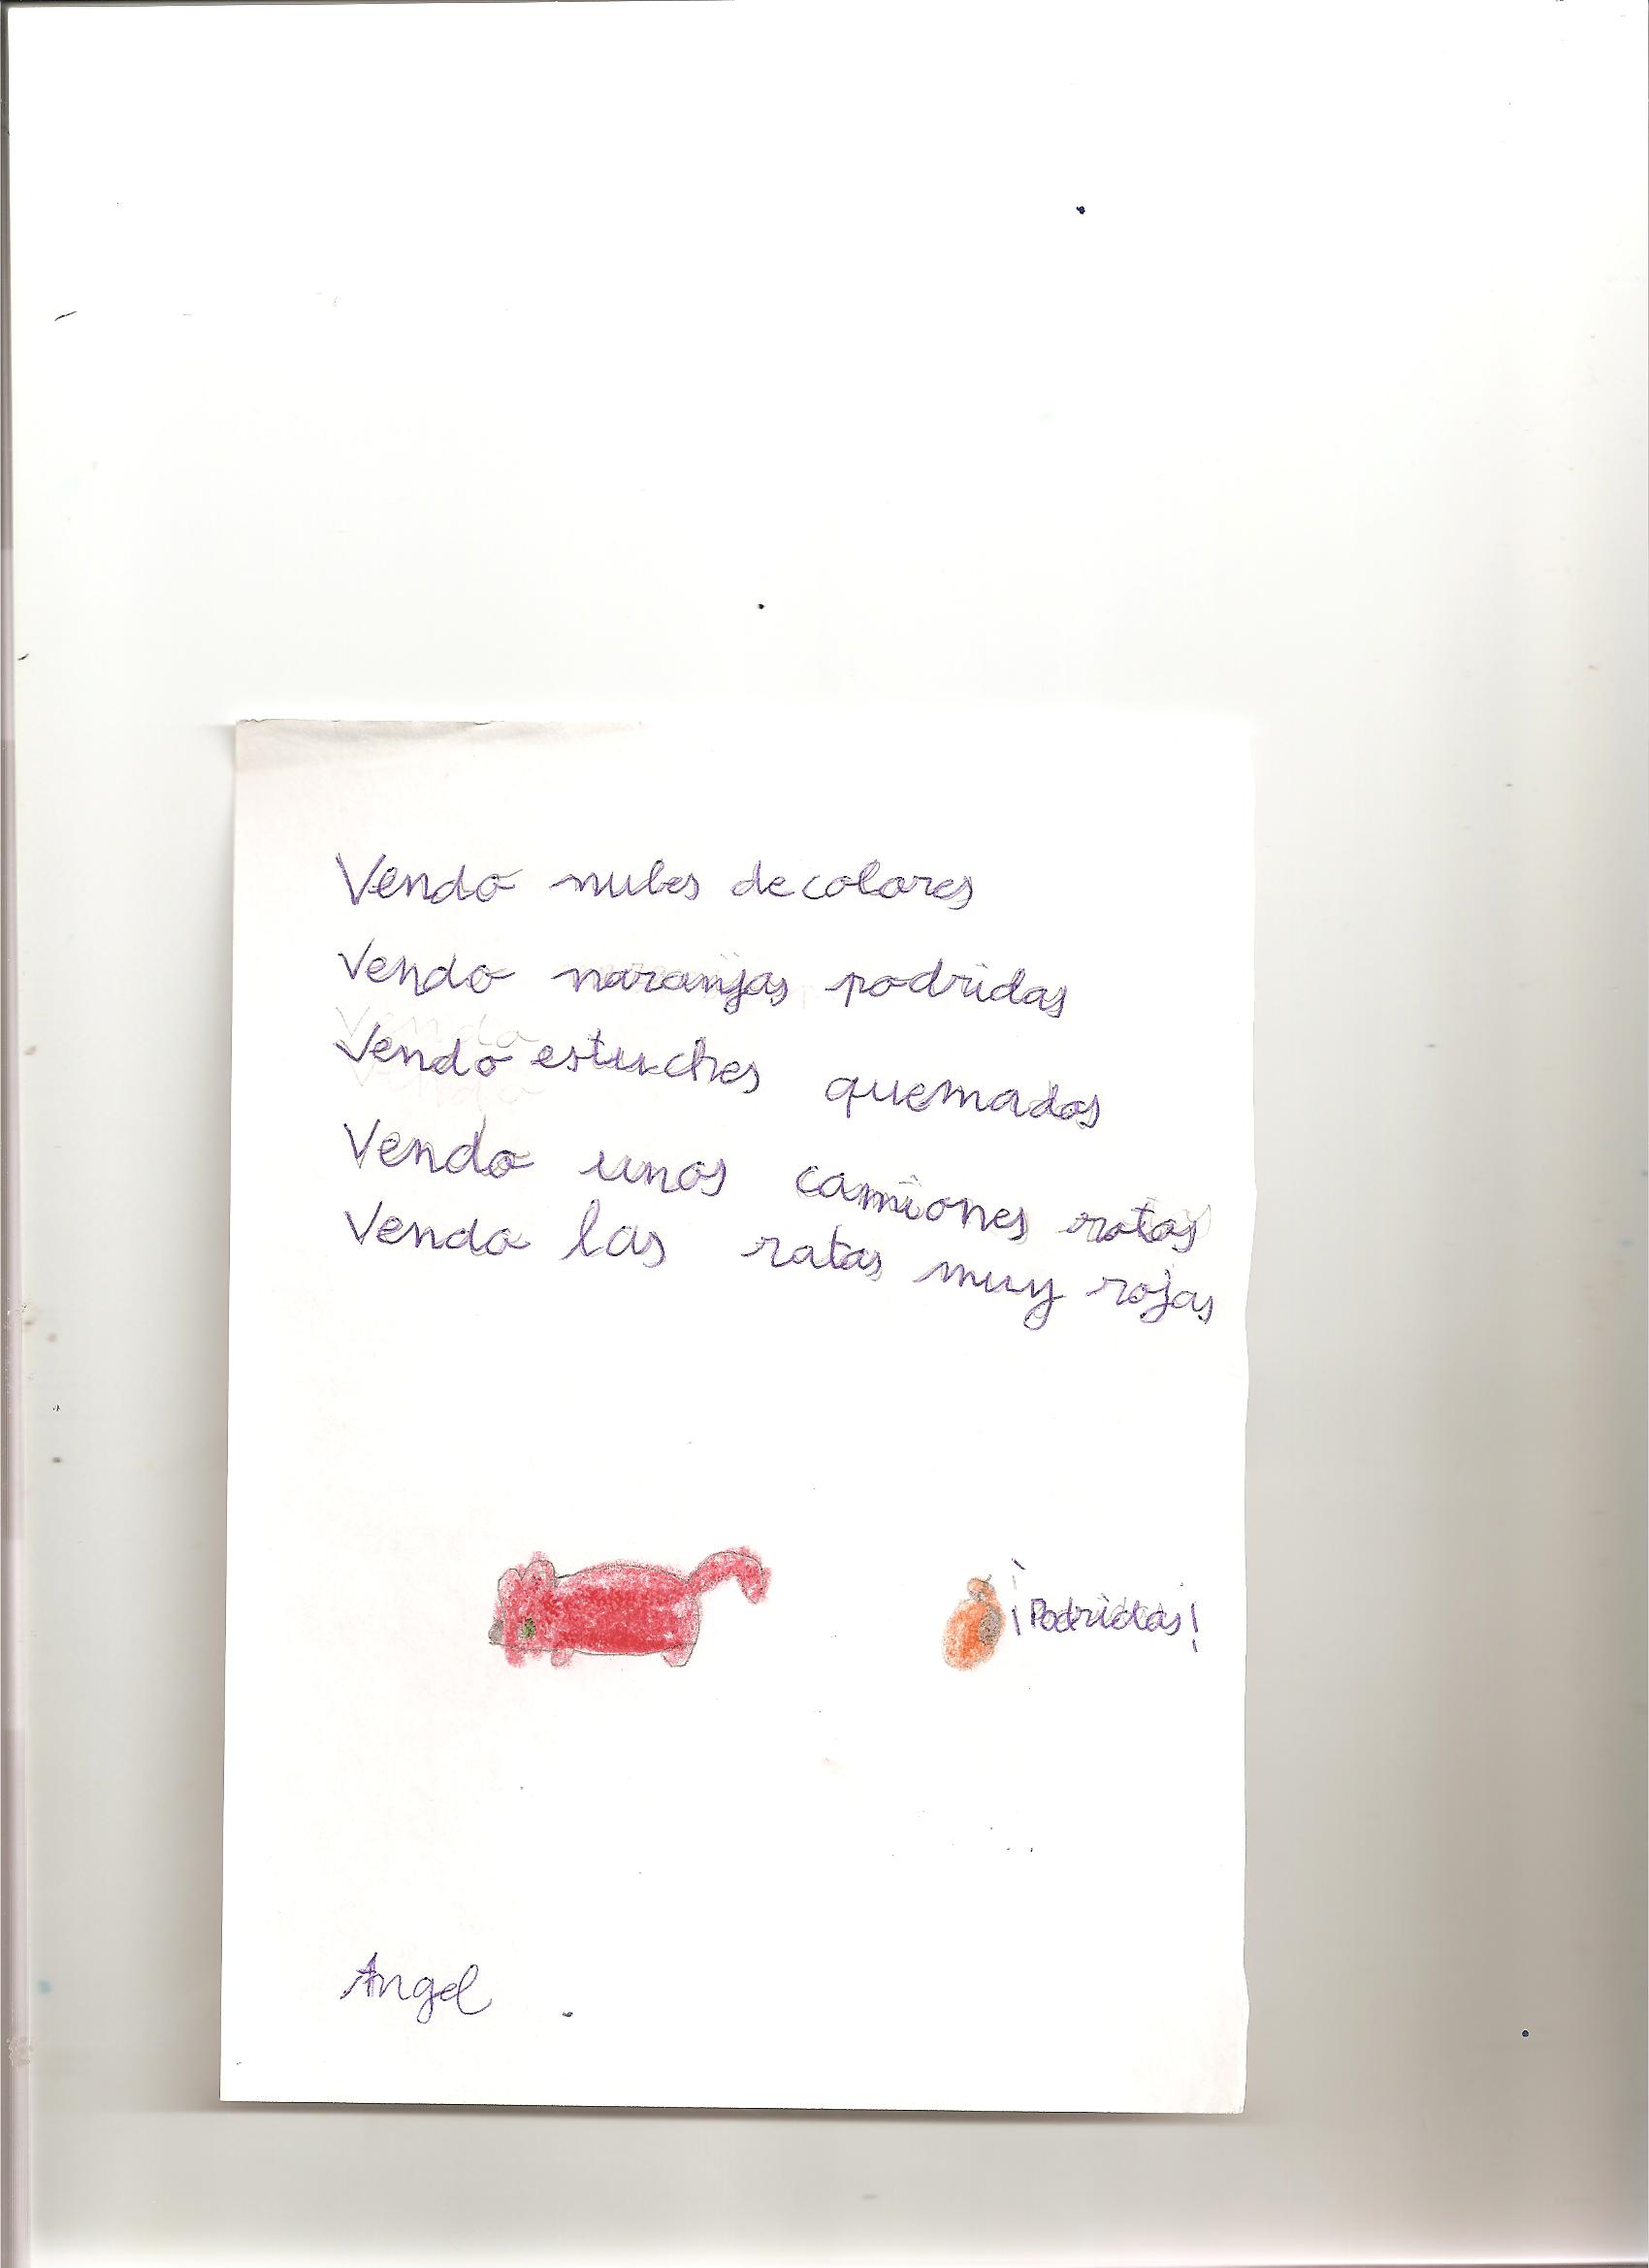 Vendo nubes de colores
Vendo naranjas podridas
Vendo estuches quemados
Vendo unos camiones rotos
Vendo las ratas muy rojas
¡Podridas!
Angel